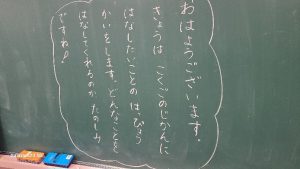 おはようございます。
きょうは、こくごのじかんに
はなしたいことのは、ぴょう
かいをします。どんなことを
はなしてくれるのか たのしみ
ですね！